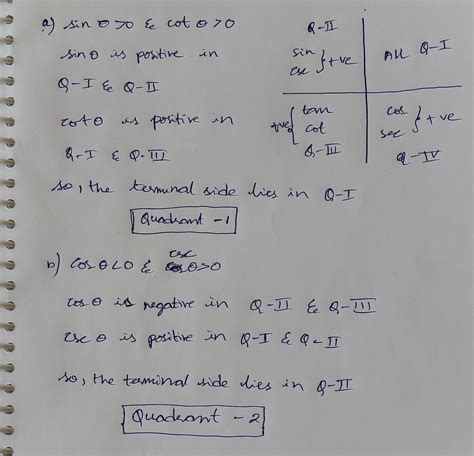 a) sin θ >0 & cot θ >0
sin θ is positive in
Q-I & Q-II
cot θ is positive in
Q-I & Q-III
so, the terminal side lies in Q-I
Quadrant - 1
Q-II
sin
csc } +ve
All Q-I
+ve { tan
cot
Q-III
cos
sec } +ve
Q-IV
b) cos θ <0 & csc θ >0
cos θ is negative in Q-II & Q-III
csc θ is positive in Q-I & Q-II
so, the terminal side lies in Q-II
Quadrant - 2